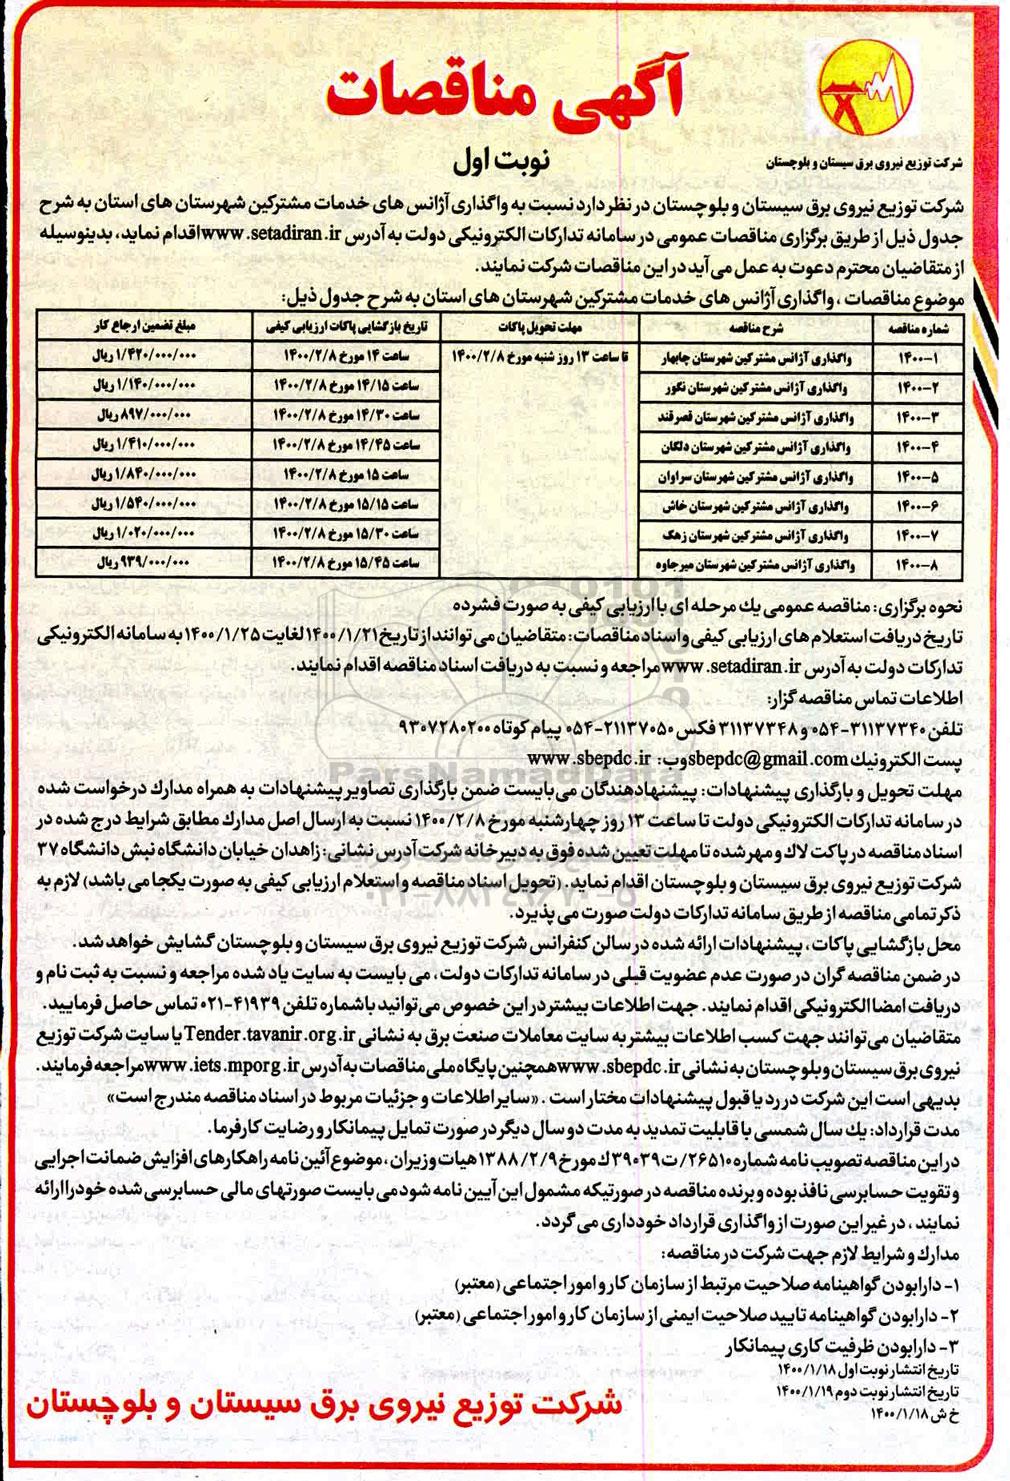 آگهی مناقصات
شرکت توزیع نیروی برق سیستان و بلوچستان
نوبت اول
شرکت توزیع نیروی برق سیستان و بلوچستان در نظر دارد نسبت به واگذاری آژانس های خدمات مشترکین شهرستان های استان به شرح
جدول ذیل از طریق برگزاری مناقصات عمومی در سامانه تدارکات الکترونیکی دولت به آدرس www.setadiran.ir اقدام نماید، بدینوسیله
از متقاضیان محترم دعوت به عمل می آید در این مناقصات شرکت نمایند.
موضوع مناقصات ، واگذاری آژانس های خدمات مشترکین شهرستان های استان به شرح جدول ذیل:
شماره مناقصه | شرح مناقصه | مهلت تحویل پاکات | تاریخ بازگشایی پاکات ارزیابی کیفی | مبلغ تضمین ارجاع کار
۱۴۰۰-۱ | واگذاری آژانس مشترکین شهرستان چابهار | تا ساعت ۱۳ روز شنبه مورخ ۱۴۰۰/۲/۸ | ساعت ۱۴ مورخ ۱۴۰۰/۲/۸ | ۱/۴۲۰/۰۰۰/۰۰۰ ریال
۱۴۰۰-۲ | واگذاری آژانس مشترکین شهرستان نگور | ساعت ۱۴/۱۵ مورخ ۱۴۰۰/۲/۸ | ۱/۱۴۰/۰۰۰/۰۰۰ ریال
۱۴۰۰-۳ | واگذاری آژانس مشترکین شهرستان قصرقند | ساعت ۱۴/۳۰ مورخ ۱۴۰۰/۲/۸ | ۸۹۷/۰۰۰/۰۰۰ ریال
۱۴۰۰-۴ | واگذاری آژانس مشترکین شهرستان دلگان | ساعت ۱۴/۴۵ مورخ ۱۴۰۰/۲/۸ | ۱/۴۱۰/۰۰۰/۰۰۰ ریال
۱۴۰۰-۵ | واگذاری آژانس مشترکین شهرستان سراوان | ساعت ۱۵ مورخ ۱۴۰۰/۲/۸ | ۱/۸۴۰/۰۰۰/۰۰۰ ریال
۱۴۰۰-۶ | واگذاری آژانس مشترکین شهرستان خاش | ساعت ۱۵/۱۵ مورخ ۱۴۰۰/۲/۸ | ۱/۵۴۰/۰۰۰/۰۰۰ ریال
۱۴۰۰-۷ | واگذاری آژانس مشترکین شهرستان زهک | ساعت ۱۵/۳۰ مورخ ۱۴۰۰/۲/۸ | ۱/۰۲۰/۰۰۰/۰۰۰ ریال
۱۴۰۰-۸ | واگذاری آژانس مشترکین شهرستان میرجاوه | ساعت ۱۵/۴۵ مورخ ۱۴۰۰/۲/۸ | ۹۳۹/۰۰۰/۰۰۰ ریال
نحوه برگزاری: مناقصه عمومی یک مرحله ای با ارزیابی کیفی به صورت فشرده
تاریخ دریافت استعلام های ارزیابی کیفی و اسناد مناقصات: متقاضیان می توانند از تاریخ ۱۴۰۰/۱/۲۱ لغایت ۱۴۰۰/۱/۲۵ به سامانه الکترونیکی
تدارکات دولت به آدرس www.setadiran.ir مراجعه و نسبت به دریافت اسناد مناقصه اقدام نمایند.
اطلاعات تماس مناقصه گزار:
تلفن ۳۱۱۳۷۳۴۰-۰۵۴ و ۳۱۱۳۷۳۴۸ فکس ۲۱۱۳۷۰۵۰-۰۵۴ پیام کوتاه ۹۳۰۷۲۸۰۲۰۰
پست الکترونیک sbepdc@gmail.com وب: www.sbepdc.ir
ParsNamadData
مهلت تحویل و بارگذاری پیشنهادات: پیشنهاد دهندگان می بایست ضمن بارگذاری تصاویر پیشنهادات به همراه مدارک درخواست شده
در سامانه تدارکات الکترونیکی دولت تا ساعت ۱۳ روز چهارشنبه مورخ ۱۴۰۰/۲/۸ نسبت به ارسال اصل مدارک مطابق شرایط درج شده در
اسناد مناقصه در پاکت لاک و مهر شده تا مهلت تعیین شده فوق به دبیرخانه شرکت آدرس نشانی: زاهدان خیابان دانشگاه نبش دانشگاه ۳۷
شرکت توزیع نیروی برق سیستان و بلوچستان اقدام نماید. (تحویل اسناد مناقصه و استعلام ارزیابی کیفی به صورت یکجا می باشد) لازم به
ذکر تمامی مناقصه از طریق سامانه تدارکات دولت صورت می پذیرد.
محل بازگشایی پاکات ، پیشنهادات ارائه شده در سالن کنفرانس شرکت توزیع نیروی برق سیستان و بلوچستان گشایش خواهد شد.
در ضمن مناقصه گران در صورت عدم عضویت قبلی در سامانه تدارکات دولت ، می بایست به سایت یاد شده مراجعه و نسبت به ثبت نام و
دریافت امضا الکترونیکی اقدام نمایند. جهت اطلاعات بیشتر در این خصوص می توانید با شماره تلفن ۴۱۹۳۹-۰۲۱ تماس حاصل فرمایید.
متقاضیان می توانند جهت کسب اطلاعات بیشتر به سایت معاملات صنعت برق به نشانی Tender.tavanir.org.ir یا سایت شرکت توزیع
نیروی برق سیستان و بلوچستان به نشانی www.sbepdc.ir همچنین پایگاه ملی مناقصات به آدرس www.iets.mporg.ir مراجعه فرمایند.
بدیهی است این شرکت در رد یا قبول پیشنهادات مختار است . «سایر اطلاعات و جزئیات مربوط در اسناد مناقصه مندرج است»
مدت قرارداد: یک سال شمسی با قابلیت تمدید به مدت دو سال دیگر در صورت تمایل پیمانکار و رضایت کارفرما.
در این مناقصه تصویب نامه شماره ۲۶۵۱۰/ت۳۹۰۳۹ک مورخ ۱۳۸۸/۲/۹ هیات وزیران ، موضوع آئین نامه راهکارهای افزایش ضمانت اجرایی
و تقویت حسابرسی نافذ بوده و برنده مناقصه در صورتیکه مشمول این آیین نامه شود می بایست صورتهای مالی حسابرسی شده خود را ارائه
نمایند ، در غیر این صورت از واگذاری قرارداد خودداری می گردد.
مدارک و شرایط لازم جهت شرکت در مناقصه:
۱- دارا بودن گواهینامه صلاحیت مرتبط از سازمان کار و امور اجتماعی (معتبر)
۲- دارا بودن گواهینامه تایید صلاحیت ایمنی از سازمان کار و امور اجتماعی (معتبر)
۳- دارا بودن ظرفیت کاری پیمانکار
تاریخ انتشار نوبت اول ۱۴۰۰/۱/۱۸
تاریخ انتشار نوبت دوم ۱۴۰۰/۱/۱۹
خ ش ۱۴۰۰/۱/۱۸
شرکت توزیع نیروی برق سیستان و بلوچستان